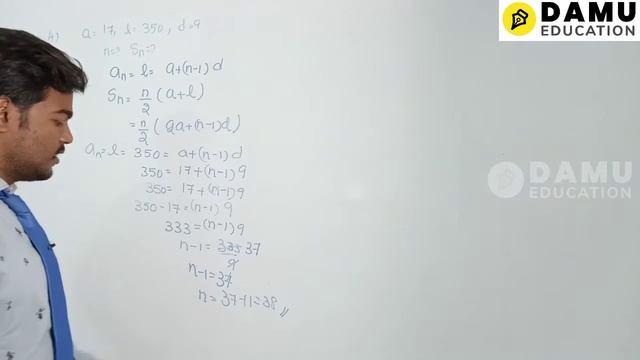 4) a = 17, l = 350, d = 9
n=? Sn=?
an = l = a+(n-1)d
Sn = n/2 (a+l)
= n/2 (2a+(n-1)d)
an = l = 350 = a+(n-1)d
350 = 17+(n-1)9
350 = 17+(n-1)9
350-17=(n-1)9
333=(n-1)9
n-1= 333/9 37
n-1=37
n = 37+1=38//
DAMU
EDUCATION
DAMU
EDUCATION